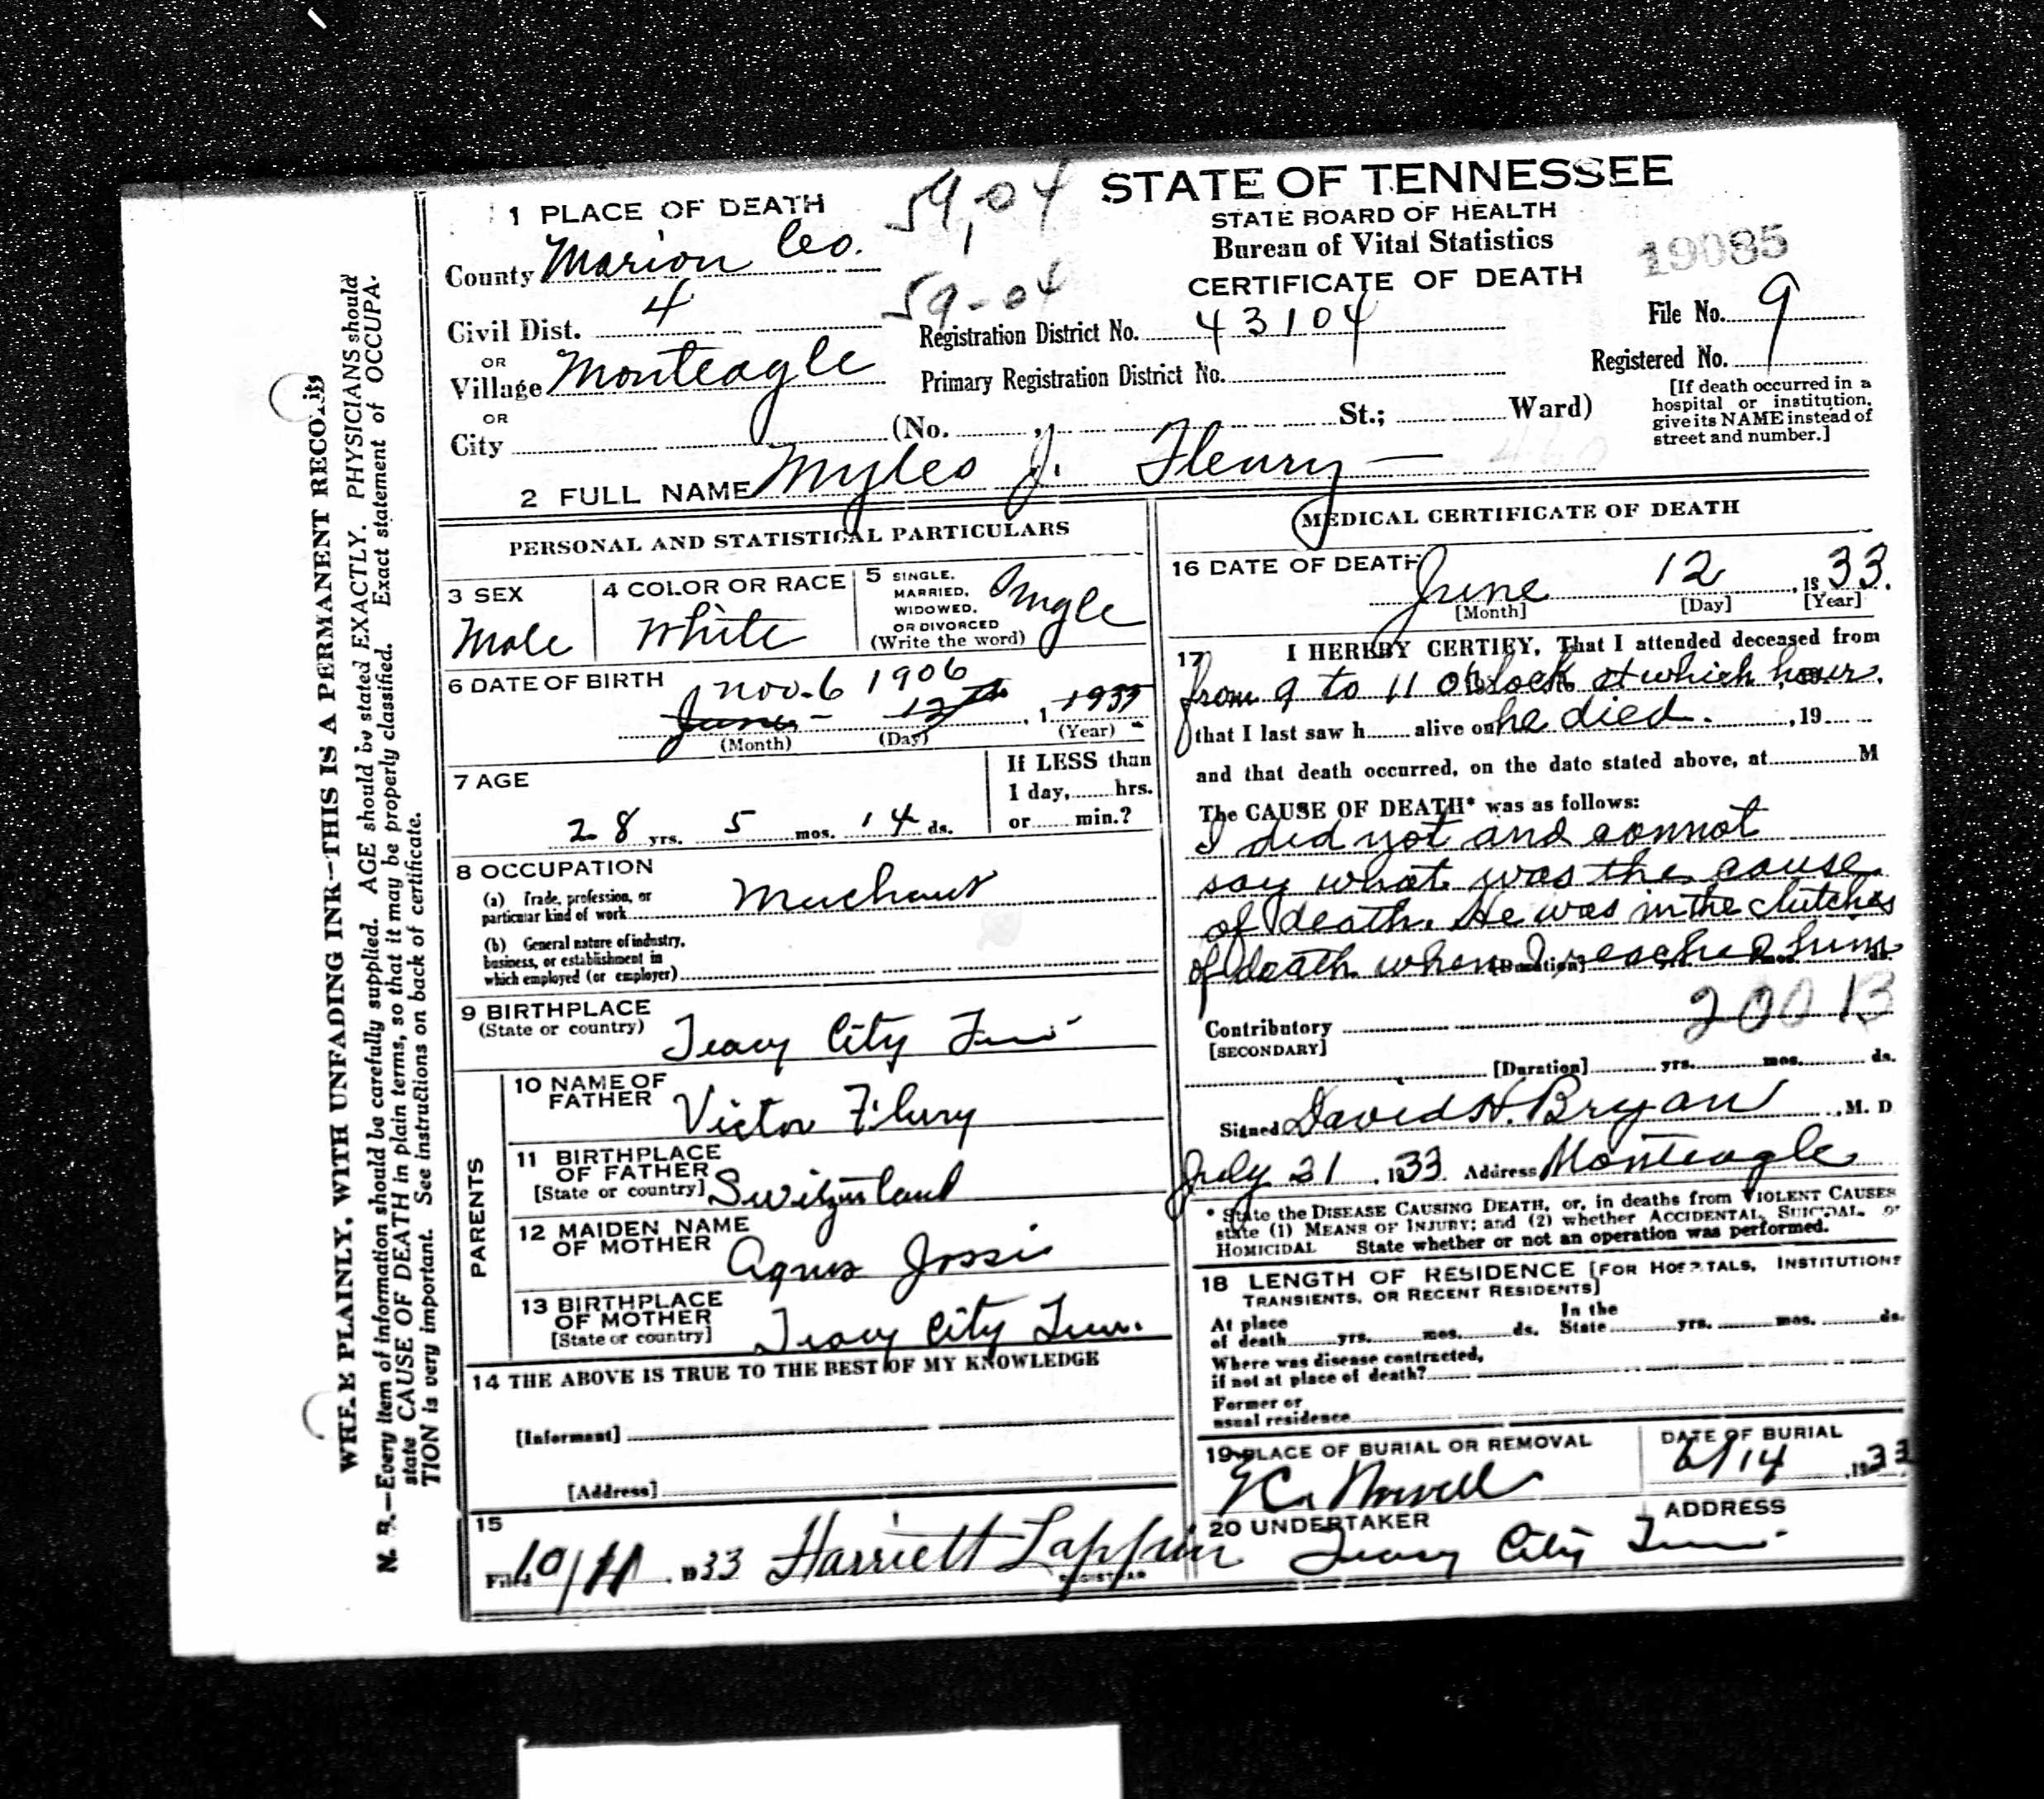 STATE OF TENNESSEE
STATE BOARD OF HEALTH
Bureau of Vital Statistics
CERTIFICATE OF DEATH
19085
1 PLACE OF DEATH
59,04
County Marion Co.
Civil Dist. 4
59-04
Registration District No. 43104
File No. 9
OR
Village Monteagle
Primary Registration District No.
Registered No. 9
OR
City (No. , St.; Ward)
[If death occurred in a
hospital or institution,
give its NAME instead of
street and number.]
2 FULL NAME Myles J. Fleury
460
PERSONAL AND STATISTICAL PARTICULARS
3 SEX
Male
4 COLOR OR RACE
White
5 SINGLE,
MARRIED,
WIDOWED,
OR DIVORCED
(Write the word)
Single
6 DATE OF BIRTH
Nov. 6 1906
June 12th, 1 1933
(Month) (Day) (Year)
7 AGE
28 yrs. 5 mos. 14 ds.
If LESS than
1 day, hrs.
or min.?
8 OCCUPATION
(a) Trade, profession, or
particular kind of work Merchant
(b) General nature of industry,
business, or establishment in
which employed (or employer)
9 BIRTHPLACE
(State or country) Tracy City Tenn
PARENTS
10 NAME OF
FATHER Victor Flury
11 BIRTHPLACE
OF FATHER
[State or country] Switzerland
12 MAIDEN NAME
OF MOTHER Agnes Jossi
13 BIRTHPLACE
OF MOTHER
[State or country] Tracy City Tenn.
14 THE ABOVE IS TRUE TO THE BEST OF MY KNOWLEDGE
[Informant]
[Address]
15
Filed 10/11, 1933 Harriett Lappin
REGISTRAR
MEDICAL CERTIFICATE OF DEATH
16 DATE OF DEATH
June 12, 1933.
[Month] [Day] [Year]
17 I HEREBY CERTIFY, That I attended deceased from
from 9 to 11 Oclock at which hour.
that I last saw h alive on he died. , 19
and that death occurred, on the date stated above, at M
The CAUSE OF DEATH* was as follows:
I did not and cannot
say what was the cause
of death. He was in the clutches
of death when I reached him
[Duration] yrs. mos. ds.
20013
Contributory
[SECONDARY]
[Duration] yrs. mos. ds.
Signed David H. Bryan, M. D
July 31, 1933 Address Monteagle
* State the DISEASE CAUSING DEATH, or, in deaths from VIOLENT CAUSES
state (1) MEANS OF INJURY; and (2) whether ACCIDENTAL, SUICIDAL, or
HOMICIDAL State whether or not an operation was performed.
18 LENGTH OF RESIDENCE [FOR HOSPITALS, INSTITUTIONS
TRANSIENTS, OR RECENT RESIDENTS]
At place
of death yrs. mos. ds.
In the
State yrs. mos. ds.
Where was disease contracted,
if not at place of death?
Former or
usual residence
19 PLACE OF BURIAL OR REMOVAL
DATE OF BURIAL
6/14, 1933
20 UNDERTAKER
ADDRESS
Tracy City Tenn.
WRITE PLAINLY, WITH UNFADING INK—THIS IS A PERMANENT RECORD
N. B.—Every item of information should be carefully supplied. AGE should be stated EXACTLY. PHYSICIANS should
state CAUSE OF DEATH in plain terms, so that it may be properly classified. Exact statement of OCCUPA-
TION is very important. See instructions on back of certificate.